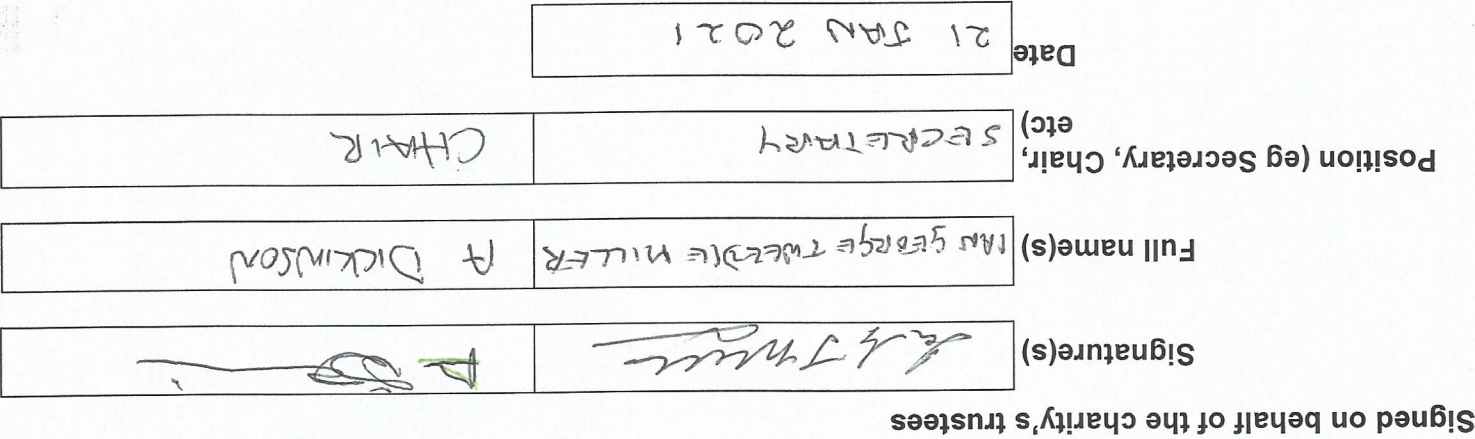 Signed on behalf of the charity's trustees
Signature(s)
Full name(s) IAN GEORGE TWEEDIE MILLER A DICKINSON
Position (eg Secretary, Chair, etc) SECRETARY CHAIR
Date 21 JAN 2021